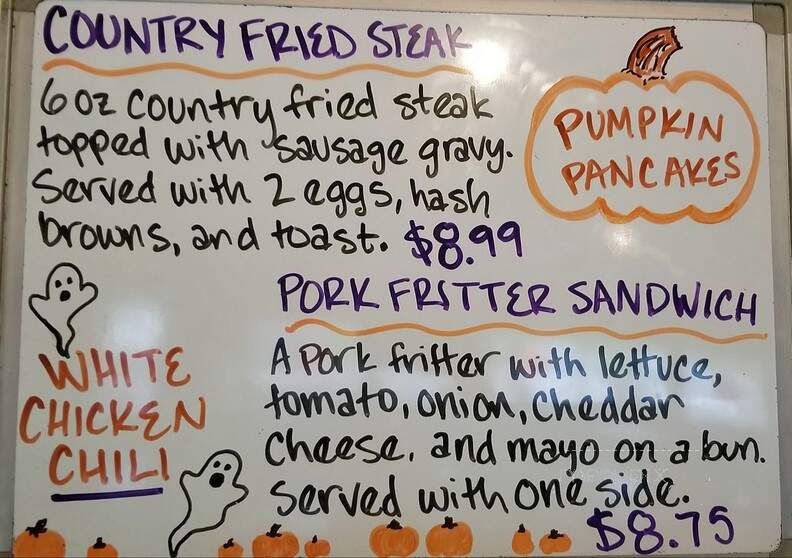 COUNTRY FRIED STEAK
6 oz country fried steak
topped with sausage gravy.
Served with 2 eggs, hash
browns, and toast. $8.99
PUMPKIN
PANCAKES
PORK FRITTER SANDWICH
A Pork fritter with lettuce,
tomato, onion, cheddar
cheese, and mayo on a bun.
served with one side.
$8.75
WHITE
CHICKEN
CHILI